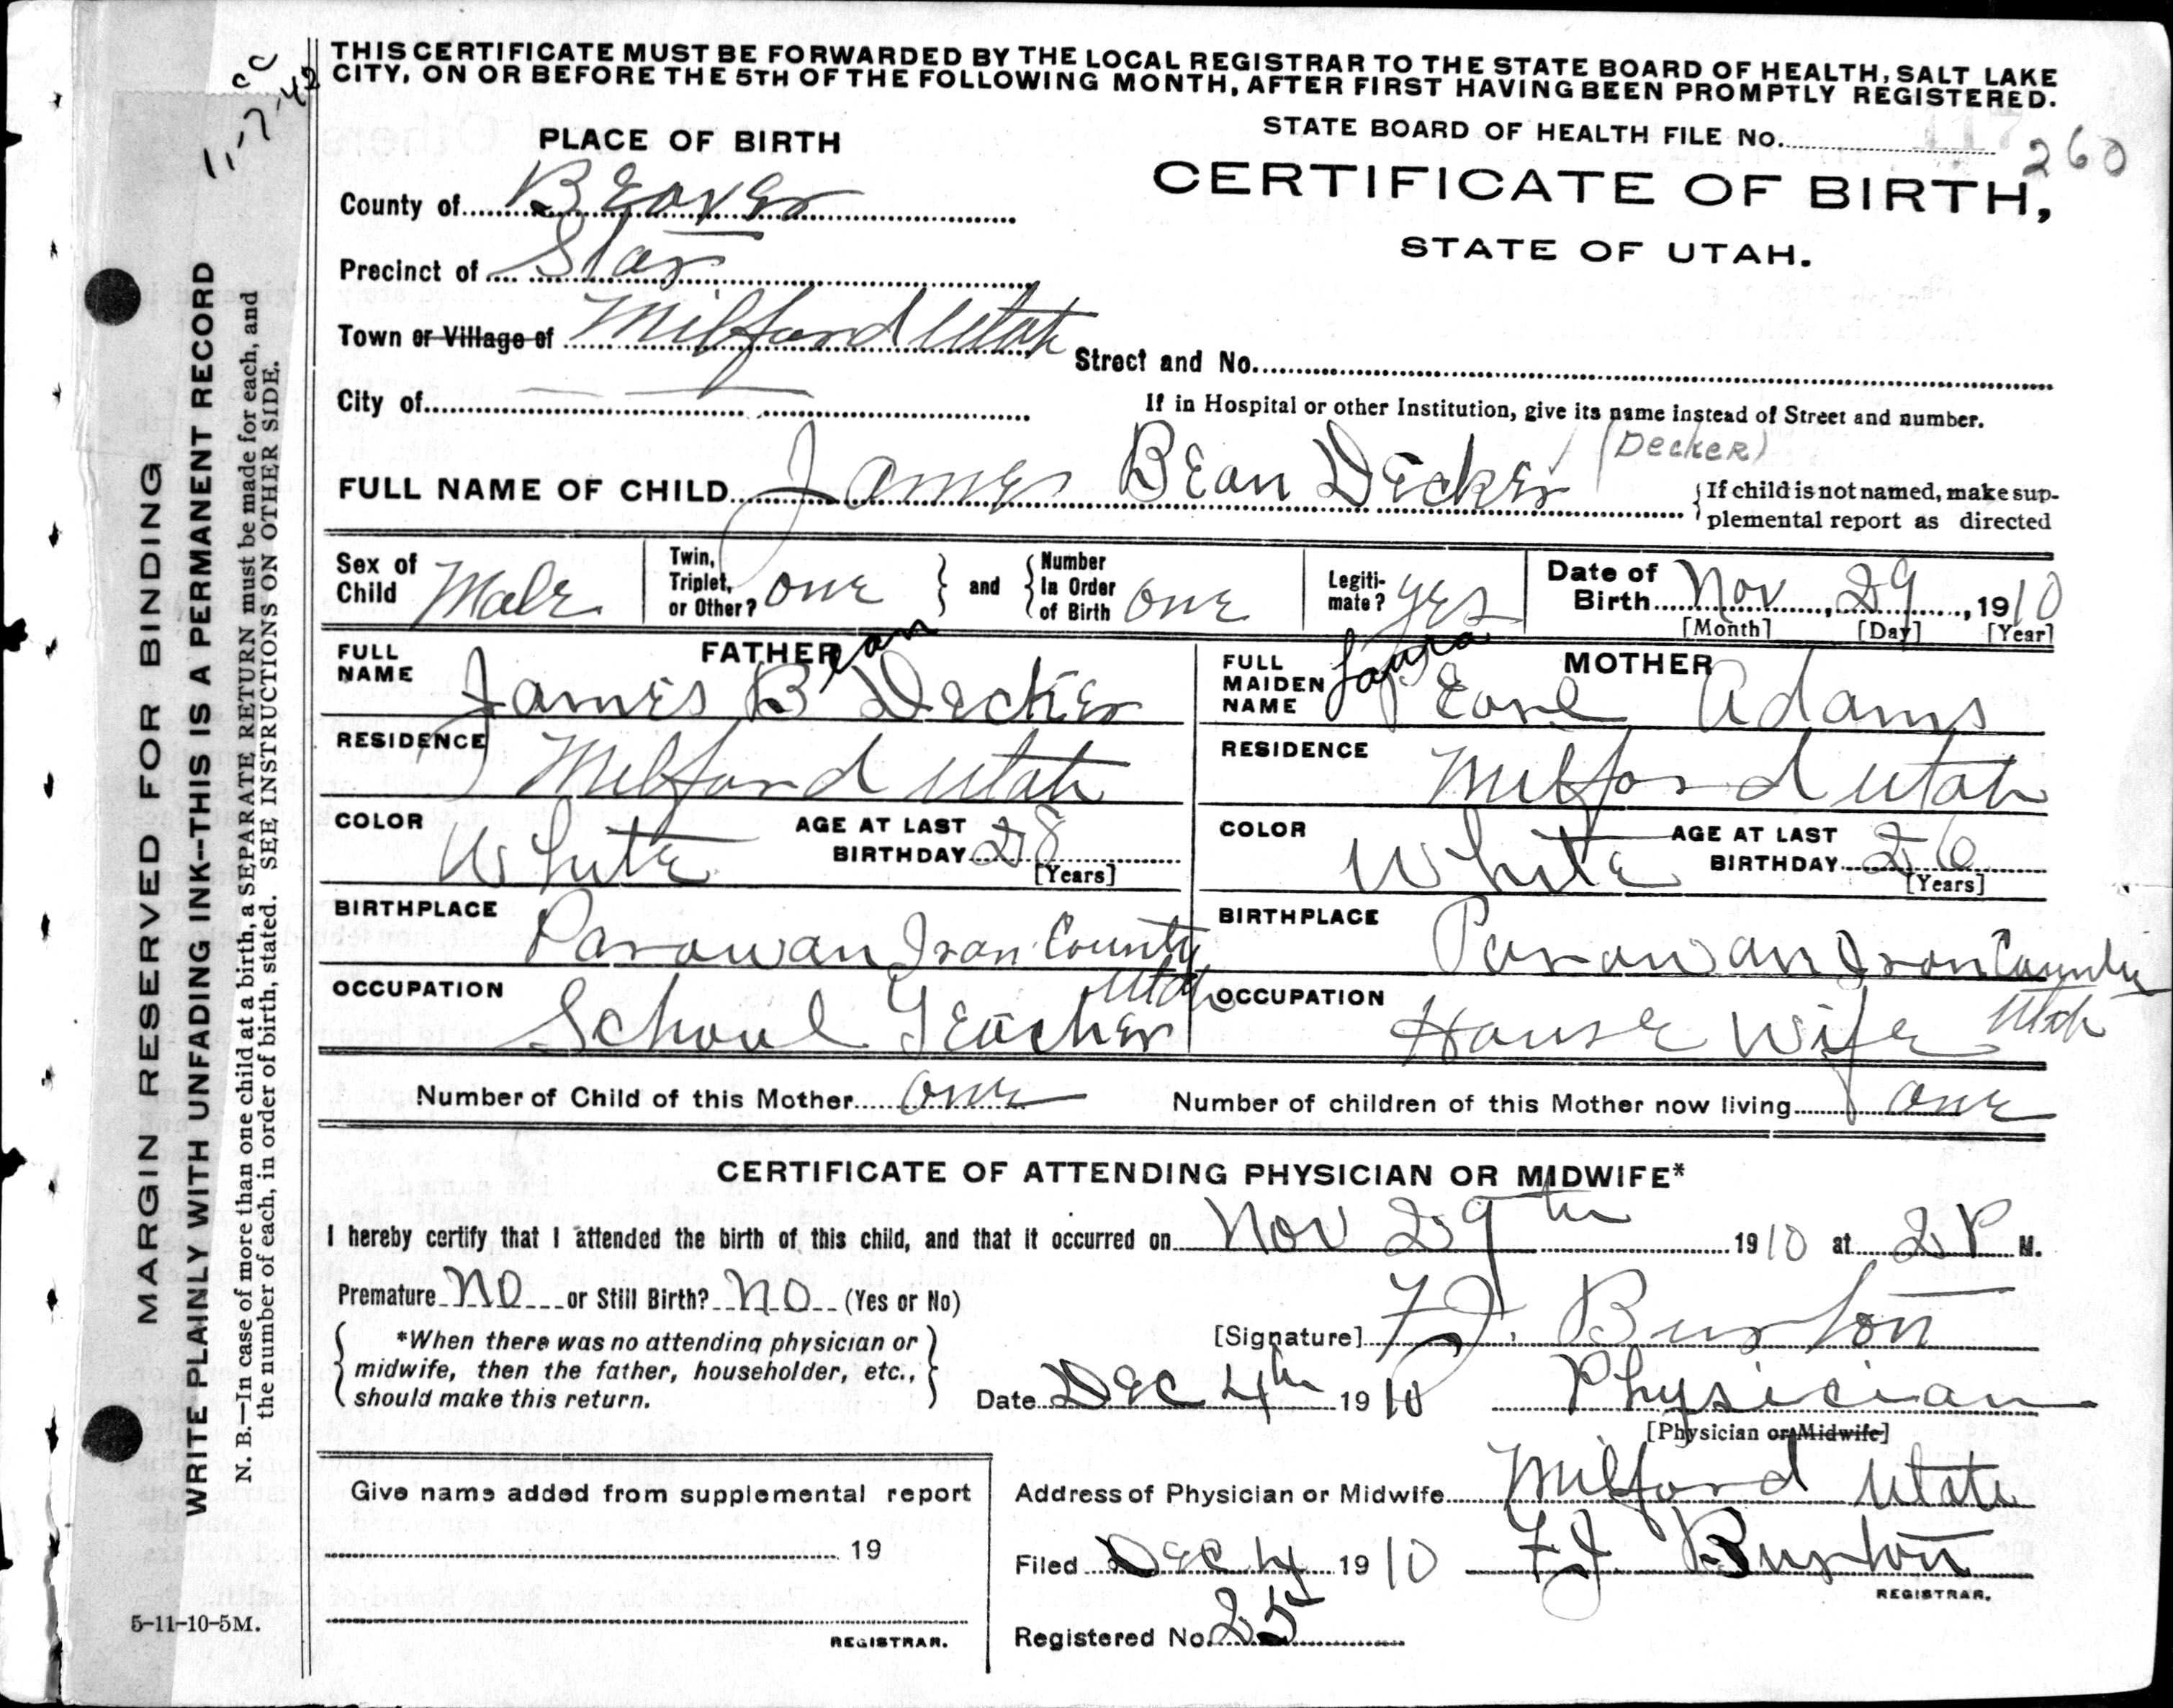 CC
11-7-42
THIS CERTIFICATE MUST BE FORWARDED BY THE LOCAL REGISTRAR TO THE STATE BOARD OF HEALTH, SALT LAKE
CITY, ON OR BEFORE THE 5TH OF THE FOLLOWING MONTH, AFTER FIRST HAVING BEEN PROMPTLY REGISTERED.
STATE BOARD OF HEALTH FILE No.
260
CERTIFICATE OF BIRTH,
STATE OF UTAH.
PLACE OF BIRTH
County of Beaver
Precinct of Star
Town or Village of Milford Utah
Street and No.
City of
If in Hospital or other Institution, give its name instead of Street and number.
FULL NAME OF CHILD James Bean Decker (Decker)
If child is not named, make sup-
plemental report as directed
Sex of Child Male
Twin, Triplet, or Other? one
and
Number In Order of Birth one
Legiti-mate? Yes
Date of Birth Nov, 29, 1910
[Month] [Day] [Year]
FATHER
FULL NAME James Bean Decker
RESIDENCE Milford Utah
COLOR White
AGE AT LAST BIRTHDAY 28
[Years]
BIRTHPLACE Parowan Iron County Utah
OCCUPATION School Teacher
MOTHER
FULL MAIDEN NAME Laura Pearl Adams
RESIDENCE Milford Utah
COLOR White
AGE AT LAST BIRTHDAY 26
[Years]
BIRTHPLACE Parowan Iron County Utah
OCCUPATION House Wife
Number of Child of this Mother one
Number of children of this Mother now living one
CERTIFICATE OF ATTENDING PHYSICIAN OR MIDWIFE*
I hereby certify that I attended the birth of this child, and that it occurred on Nov 29th 1910 at 2 P M.
Premature NO or Still Birth? NO (Yes or No)
*When there was no attending physician or
midwife, then the father, householder, etc.,
should make this return.
[Signature] F J. Burton
Date Dec 4th 1910 Physician
[Physician or Midwife]
Address of Physician or Midwife Milford Utah
Filed Dec 4 1910 F J Burton
REGISTRAR.
Registered No. 25
Give name added from supplemental report
19
REGISTRAR.
5-11-10-5M.
MARGIN RESERVED FOR BINDING
WRITE PLAINLY WITH UNFADING INK--THIS IS A PERMANENT RECORD
N. B.—In case of more than one child at a birth, a SEPARATE RETURN must be made for each, and
the number of each, in order of birth, stated. SEE INSTRUCTIONS ON OTHER SIDE.